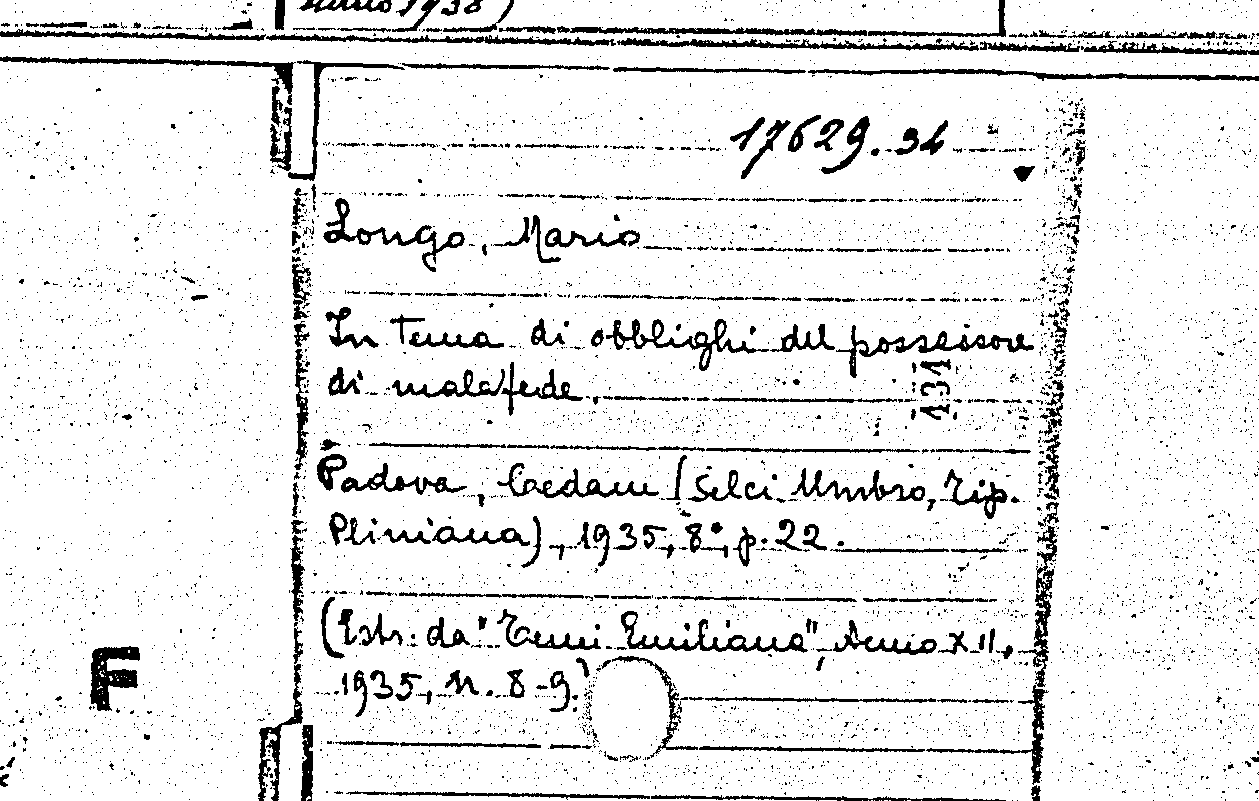 anno 1938)
17629.34
Longo, Mario
In tema di obblighi del possessore
di malafede.
131
Padova, Cedam (Selci Umbro, Tip.
Pliniana), 1935, 8°, p. 22.
(Estr. da "Temi Emiliana", Anno XII,
1935, n. 8-9.)
F